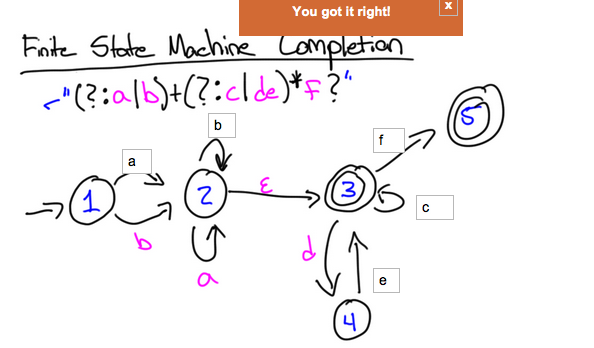 You got it right!
x
Finite State Machine Completion
r"(?:a|b)+(?:c|de)*f?"
b
f
a
5
1
2
ε
3
c
b
d
a
e
4